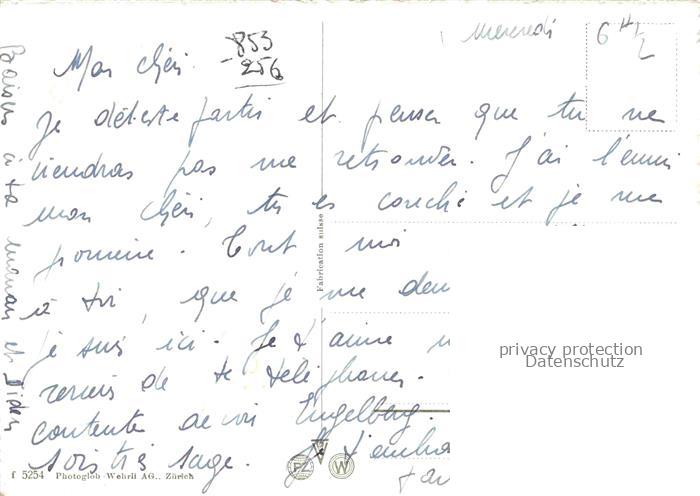 Mercredi 6 H 1/2
853
-256
Mon chéri
Je déteste partir et penser que tu ne
viendras pas me retrouver. J'ai l'ennui
mon chéri, tu es couché et je me
promène. Tout moi
à toi, que je me dem
je suis ici. Je t'aime
reviens de te téléphoner.
contente de voir Engelberg.
sois très sage. Je t'embra
Baisers à ta maman et
Fabrication suisse
privacy protection
Datenschutz
f 5254 Photoglob-Wehrli AG., Zürich
PZ W